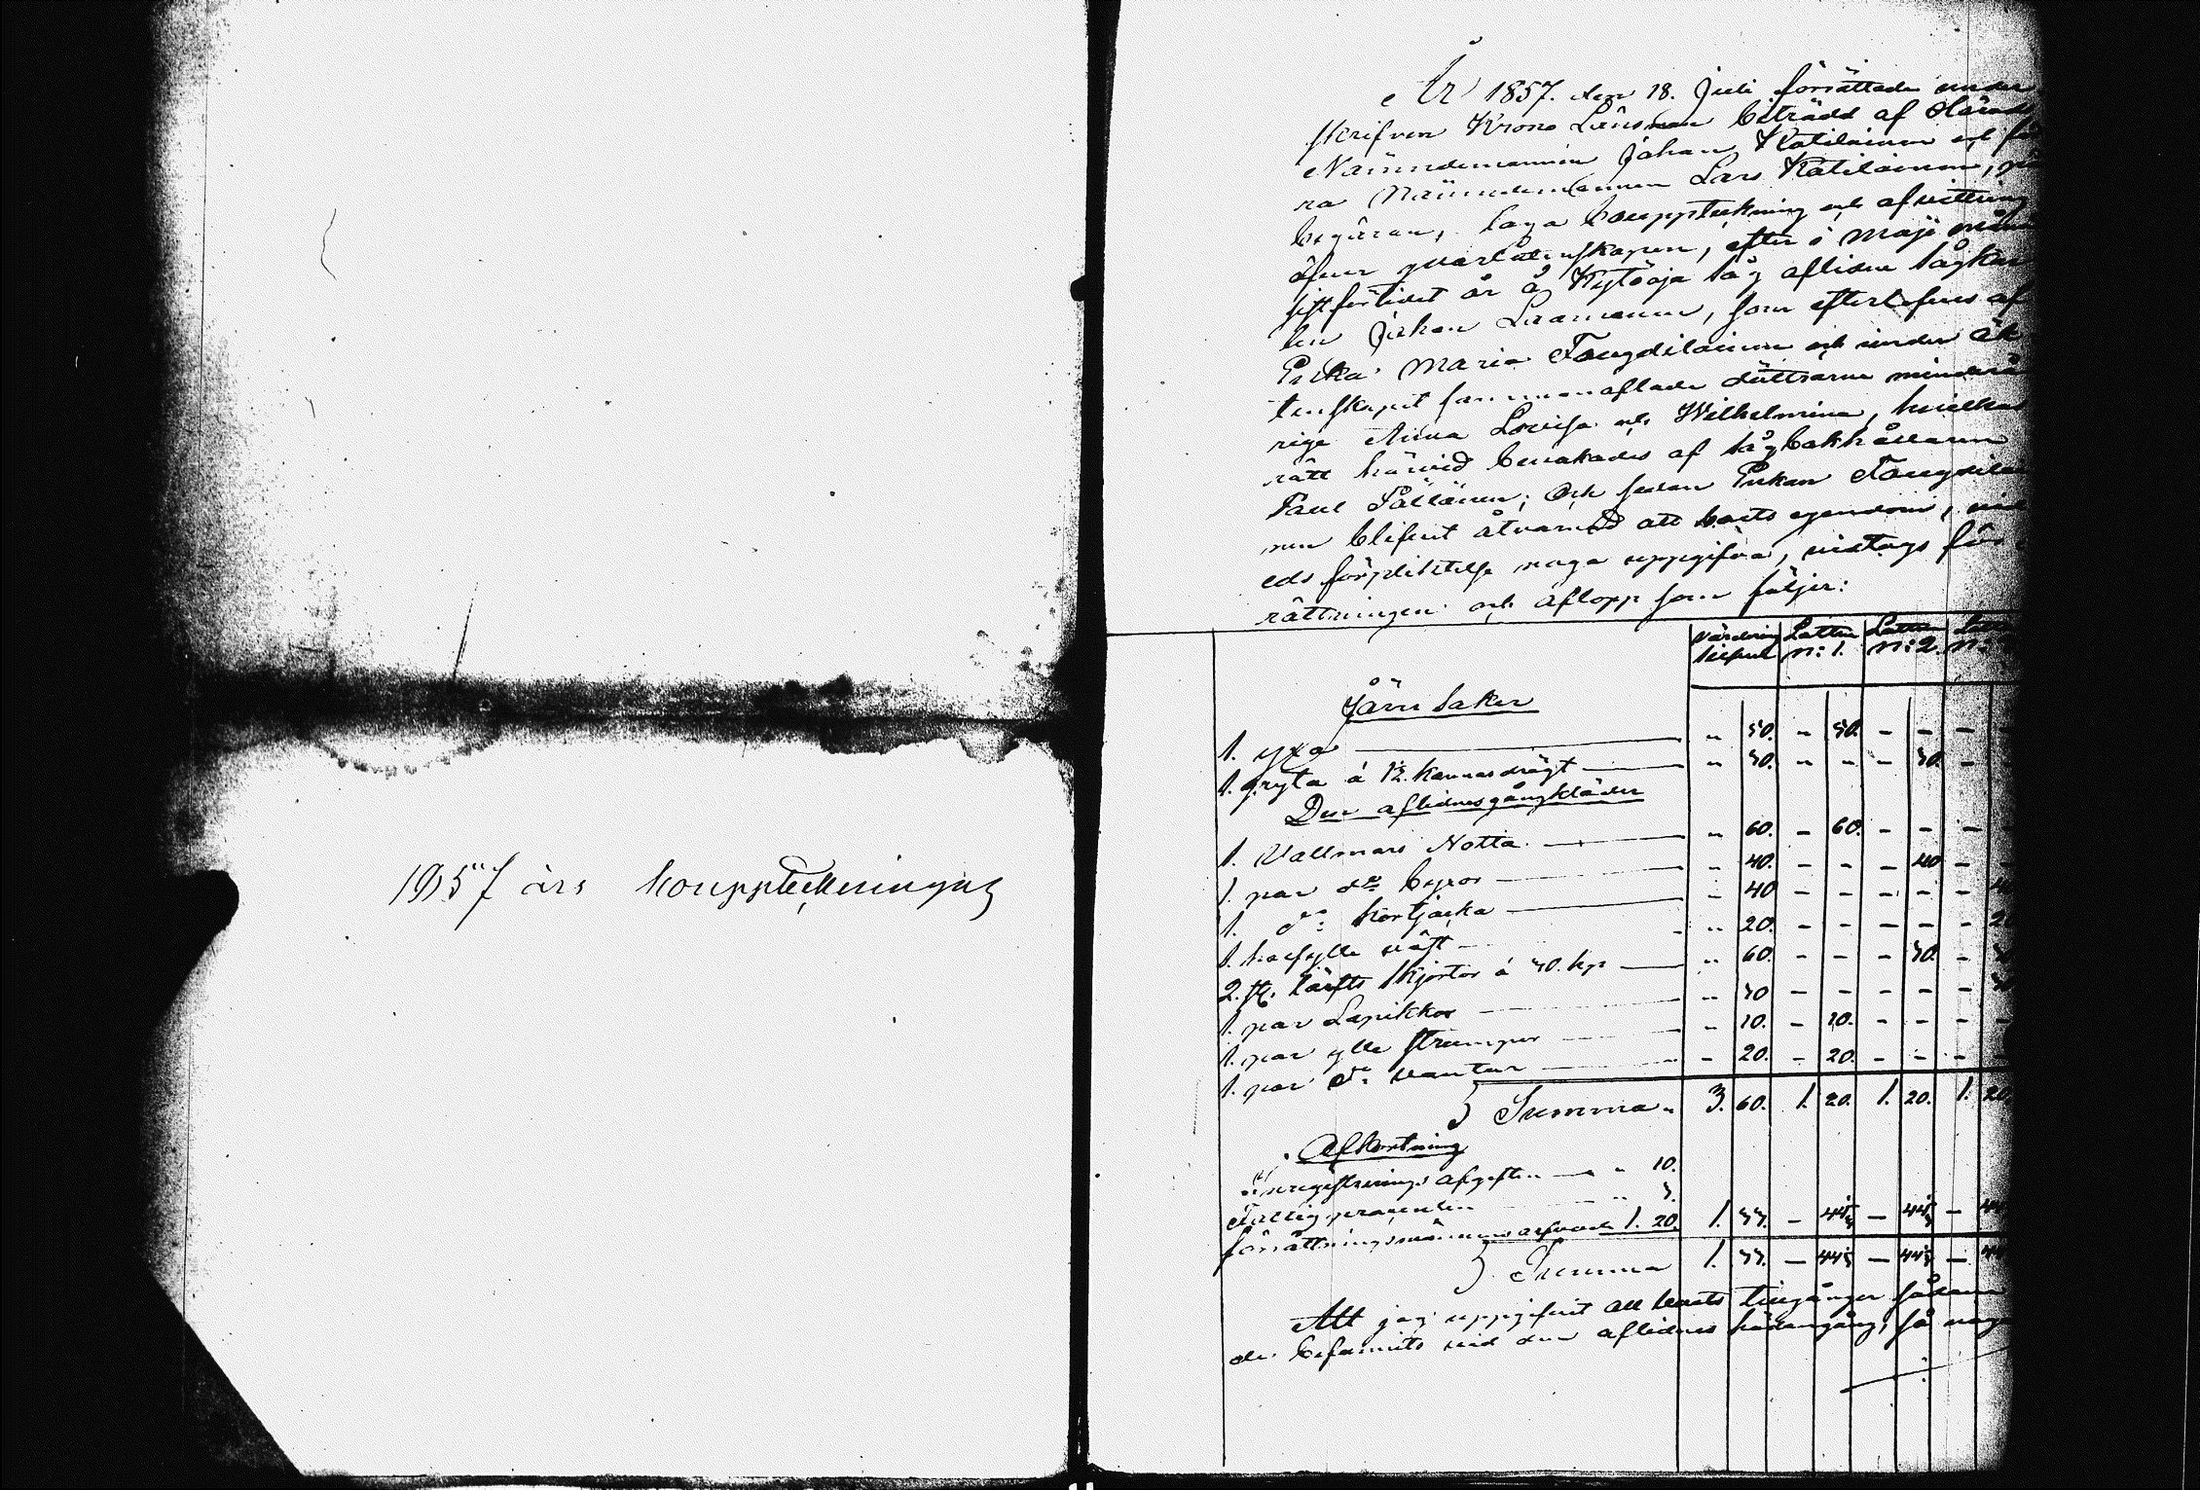 1857 års bouppteckningar
År 1857. den 18. Juli förrättade under
skrifven Krono Länsman biträdd af Härads
Nämndemannen Johan Katilainen och för
ra Nämndemannen Lars Katilainen, på
begäran, laga bouppteckning och afvittring
öfver qvarlåtenskapen, efter i Maji månad
sistförlidet år å Kytöoja såg aflidne sågkar
len Johan Laamanen, som efterlefves af
Enkan Maria Tougdilainen och under äk
tenskapet sammanaflade döttrarne minderå
rige Anna Lovisa och Wilhelmina, hvilkas
rätt härvid bevakades af sågbokhållaren
Paul Pällänen; Och sedan Enkan Tougdilai
nen blifvit åtvarnad att boets egendom, vid
eds förpligtelse noga uppgifva, vidtogs för
rättningen och aflopp som följer:
Värdering Lotten Lotten
Silfver N:1. N:2. N:
Järn Saker
1. yxa " 50. - 50. - - -
1. gryta á 12. kannas drägt " 30. - - - 30. -
Den aflidnes gångkläder
1. Vallmars Notta " 60. - 60. - - -
1. par do byxor " 40. - - - 40 -
1. do kortjacka " 40 - - - - -
1. halfylle väst " 20. - - - - - 20
2. st. lärfts skjortor á 30. kp " 60. - - - 30. -
1. par Lapikkor " 30 - - - - -
1. par ylle strumpor " 10. - 10. - - -
1. par do vantar - 20. - 20. - - -
Summa 3. 60. 1. 20. 1. 20. 1. 20
Afkortning
registrerings afgiften " 10.
Fattigprocenten " 3.
förrättningsmännens arfvode 1. 20.
Summa
Att jag uppgifvit all boets tillgångar sådana
de befunnits vid den aflidnes frånfälle, så